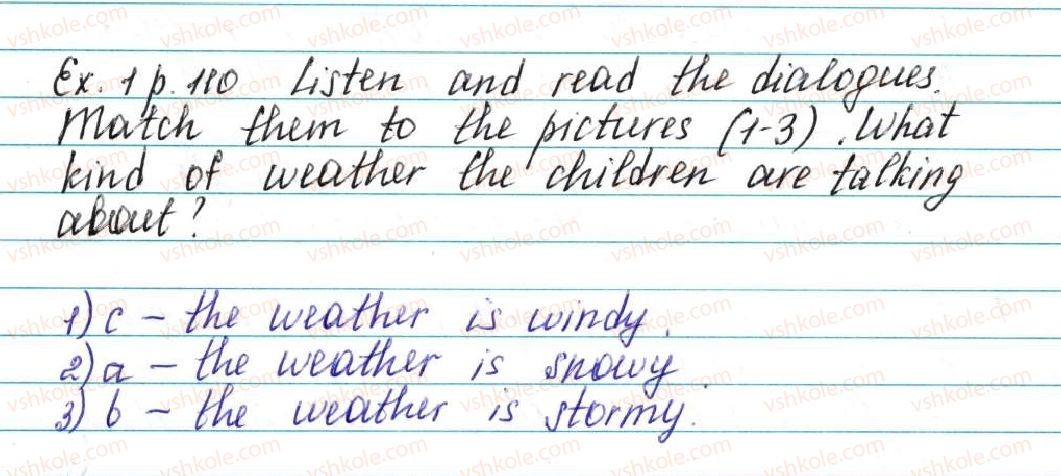 Ex. 1 p. 110 Listen and read the dialogues.
Match them to the pictures (1-3). What
kind of weather the children are talking
about?
1) c – the weather is windy.
2) a – the weather is snowy.
3) b – the weather is stormy.
vshkole.com